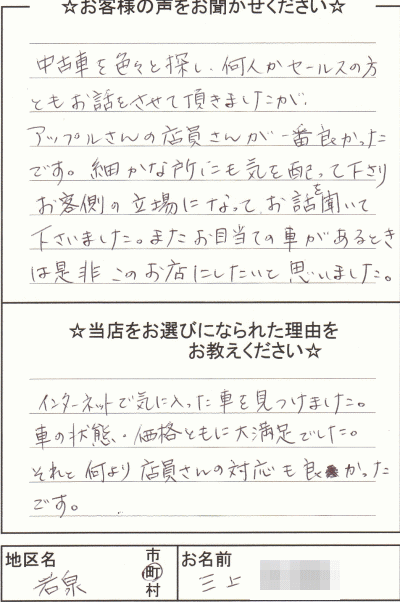 ☆お客様の声をお聞かせください☆
中古車を色々と探し、何人かセールスの方
ともお話をさせて頂きましたが、
アップルさんの店員さんが一番良かった
です。細かな所にも気を配って下さり
お客側の立場になって、お話を聞いて
下さいました。またお目当ての車があるとき
は是非このお店にしたいと思いました。
☆当店をお選びになられた理由を
お教えください☆
インターネットで気に入った車を見つけました。
車の状態・価格ともに大満足でした。
それと何より店員さんの対応も良かった
です。
地区名 岩泉 市町村
お名前 三上